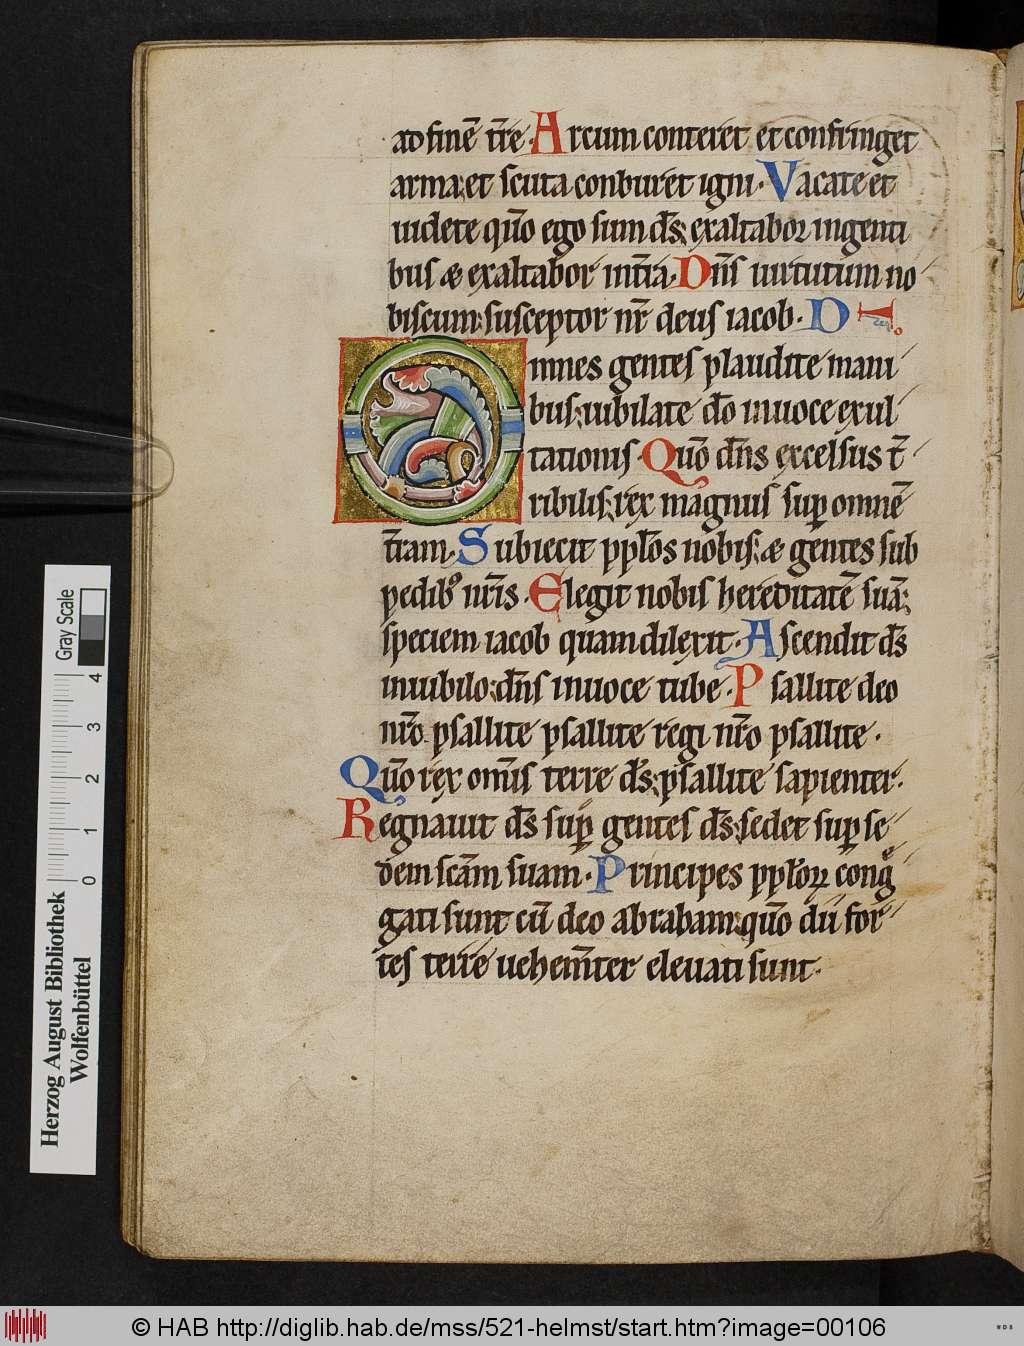 ad finē tr̄e. Arcum conteret et confringet
arma: et scuta conburet igni. Vacate et
uidete qm̄o ego sum d̄s: exaltabor in genti
bus & exaltabor in t̄ra. Dn̄s uirtutum no
biscum: susceptor nr̄ deus iacob. D
Omnes gentes plaudite mani
bus: iubilate d̄o in uoce exul
tationis. Qūo dn̄s excelsus t̄
ribilis: rex magnus sup omnē
t̄ram. Subiecit pplo̅s nobis: & gentes sub
pedibꝰ nr̄is. Elegit nobis hereditatē suā:
speciem iacob quam dilexit. Ascendit d̄s
in iubilo: dn̄s in uoce tube. Psallite deo
nr̄o psallite psallite regi nr̄o psallite.
Qūo rex om̄is terre d̄s: psallite sapienter.
Regnauit d̄s sup gentes d̄s: sedet sup se
dem sc̄am suam. Principes pploꝝ cong̊
gati sunt cū deo abraham: qūo dii for
tes terre uehem̄ter eleuati sunt.
Herzog August Bibliothek
Wolfenbüttel
0 1 2 3 4
Gray Scale
© HAB http://diglib.hab.de/mss/521-helmst/start.htm?image=00106